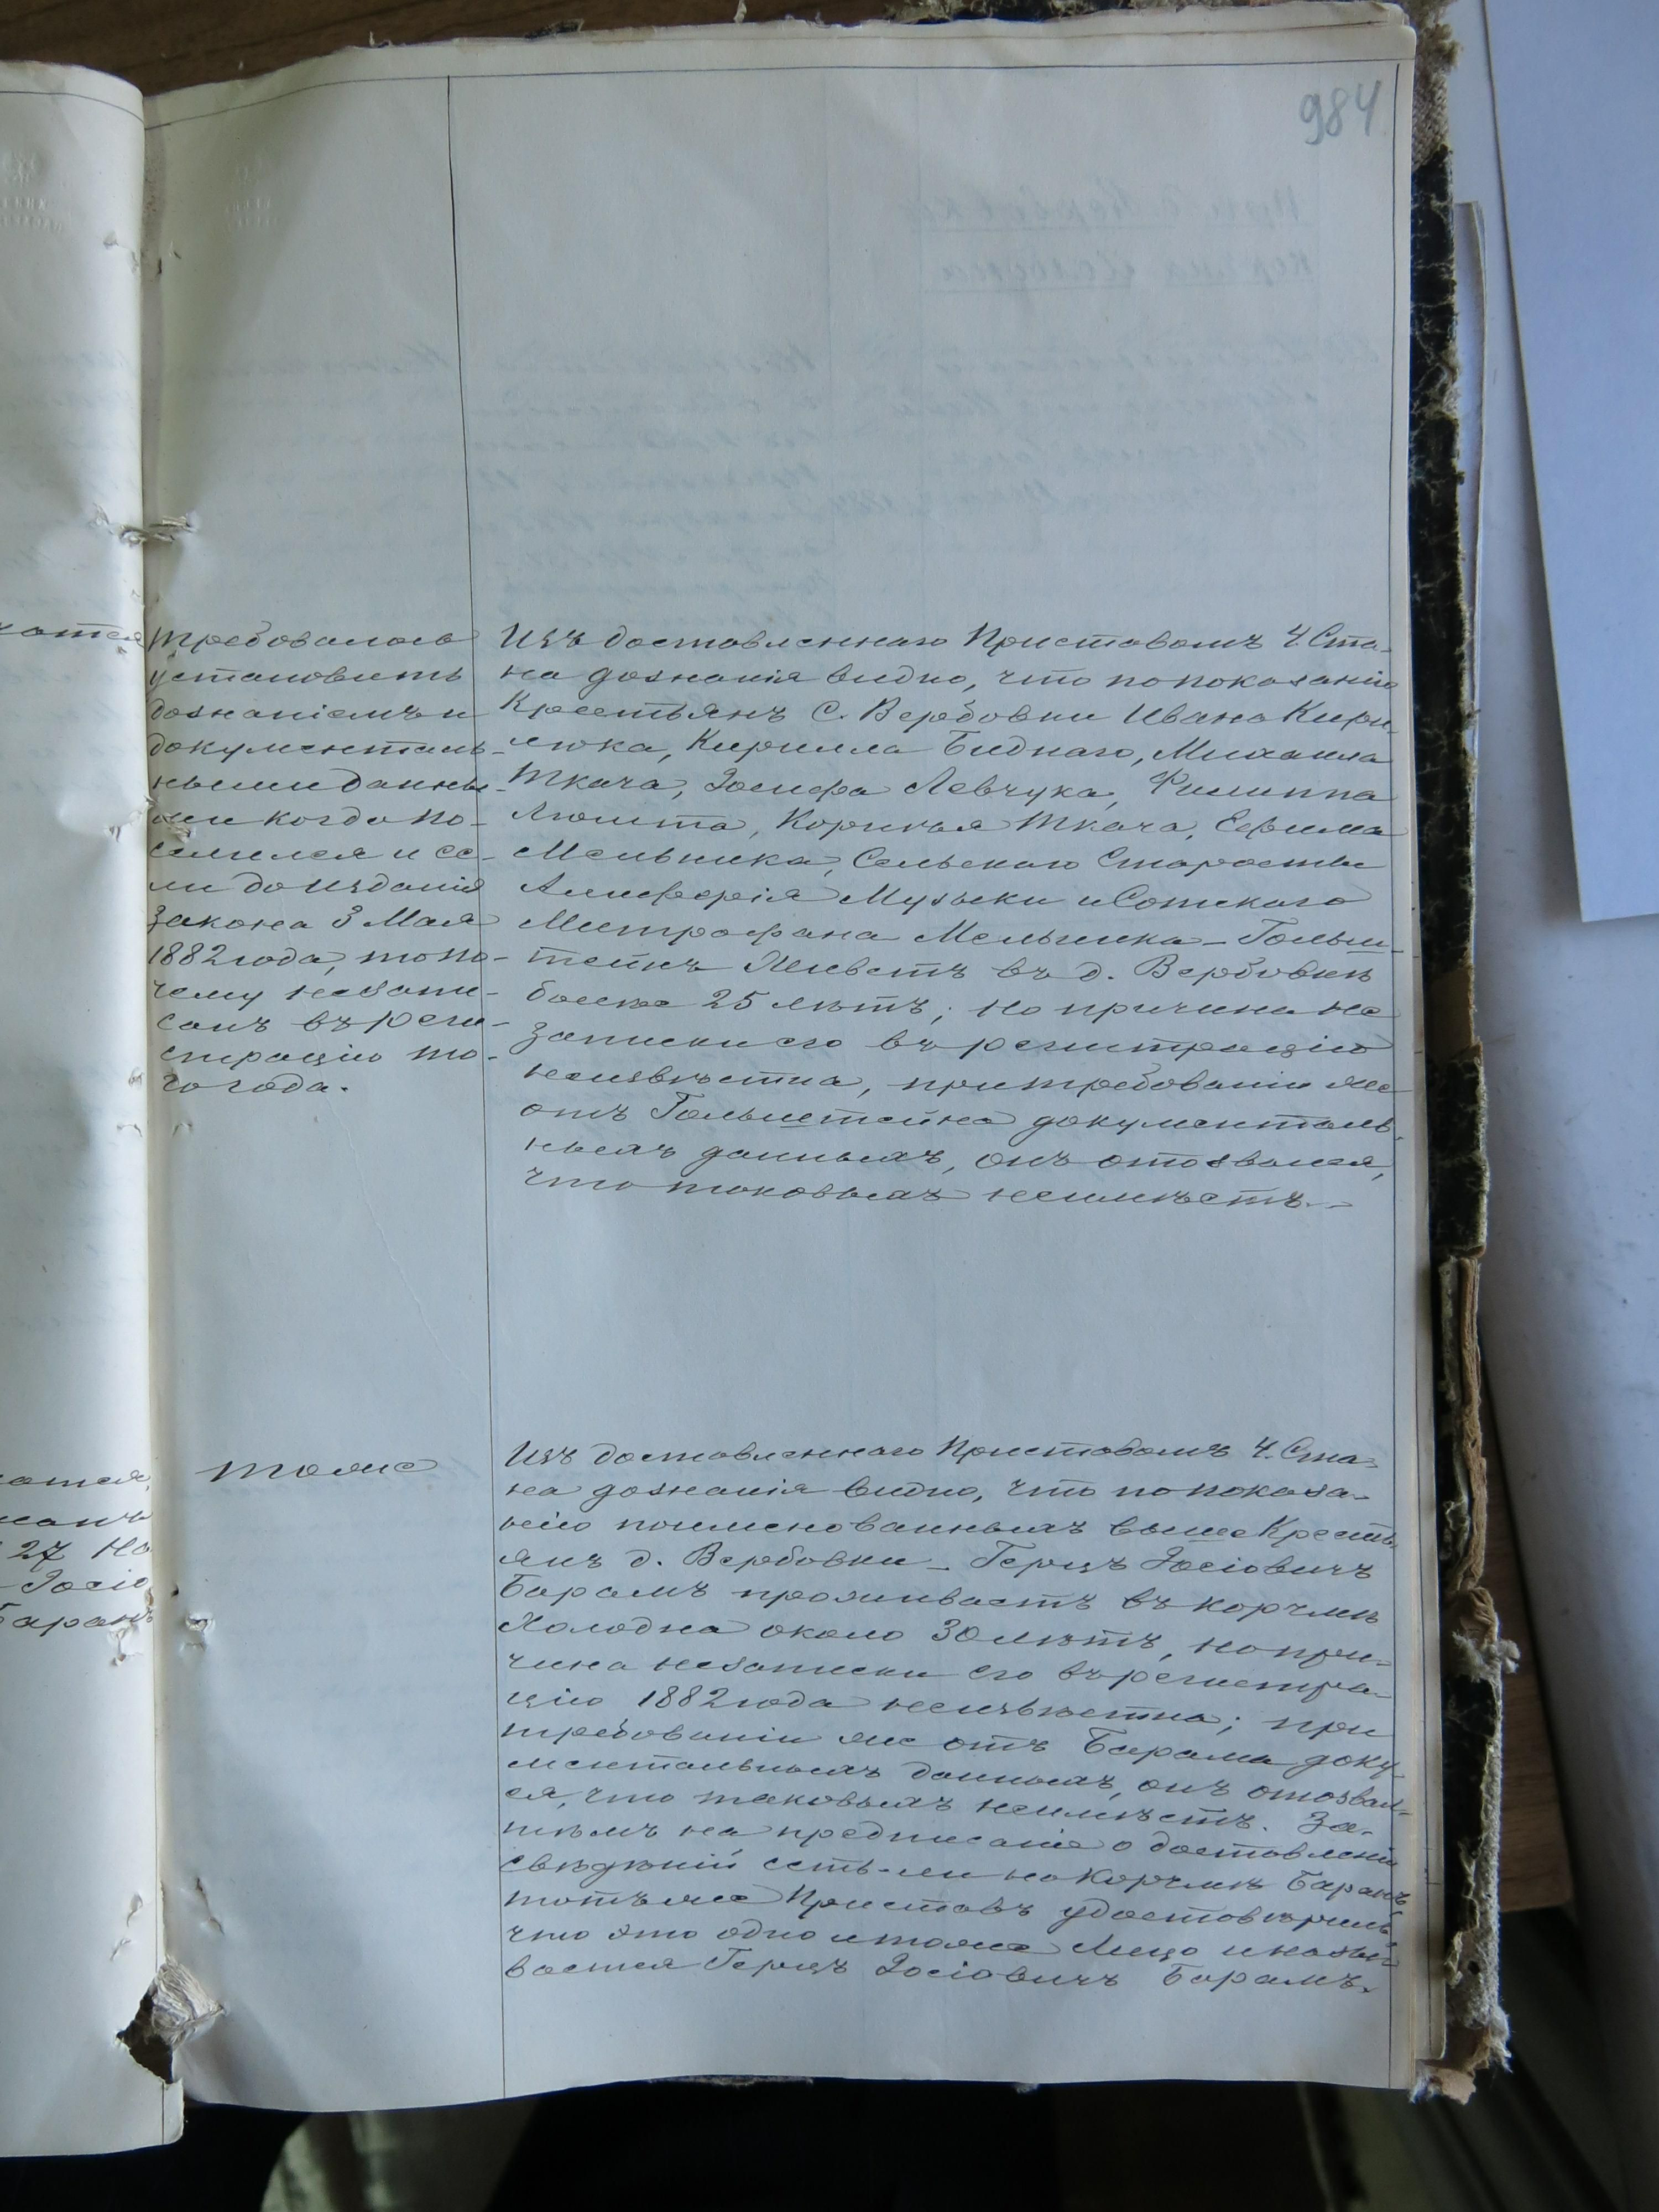 984
требовалось
установить
дознаніемъ и
документаль-
ными данны-
ми когда по-
селился и ес-
ли до изданія
закона 3 Мая
1882 года, то по-
чему не запи-
санъ въ реги-
страцію то-
го года.
Изъ доставленнаго Приставомъ 4. Ста-
на дознанія видно, что по показанію
Крестьянъ С. Вербовки Ивана Кири-
люка, Кирилла Биднаго, Михаила
Ткача, Іосифа Левчука, Филиппа
Люшта, Корнилія Ткача, Ефима
Мельника, Сельскаго Старосты
Алиферія Музыки и Сотскаго
Митрофана Мельника - Гольш-
тейнъ Живетъ въ д. Вербовкѣ
болѣе 25 лѣтъ; но причина не
записки его въ регистрацію
неизвѣстна, при требованіи же
отъ Гольштейна документаль-
ныхъ данныхъ, онъ отозвался,
что таковыхъ неимѣетъ.
тоже
Изъ доставленнаго Приставомъ 4. Ста-
на дознанія видно, что по показа-
нію поименованныхъ выше Кресть-
янъ д. Вербовки - Герцъ Іосіовичъ
Барамъ проживаетъ въ корчмѣ
Холодна около 30 лѣтъ, но при-
чина незаписки его въ регистра-
цію 1882 года неизвѣстна; при
требованіи же отъ Барама доку-
ментальныхъ данныхъ, онъ отозвал-
ся, что таковыхъ неимѣетъ. За-
тѣмъ на предписаніе о доставленіи
свѣдѣній есть-ли на Корчмѣ Баранъ
тотъ же Приставъ удостовѣрилъ
что это одно и тоже Лицо и назы-
вается Герцъ Іосіовичъ Барамъ.
27 но
Іосіо
Баранъ